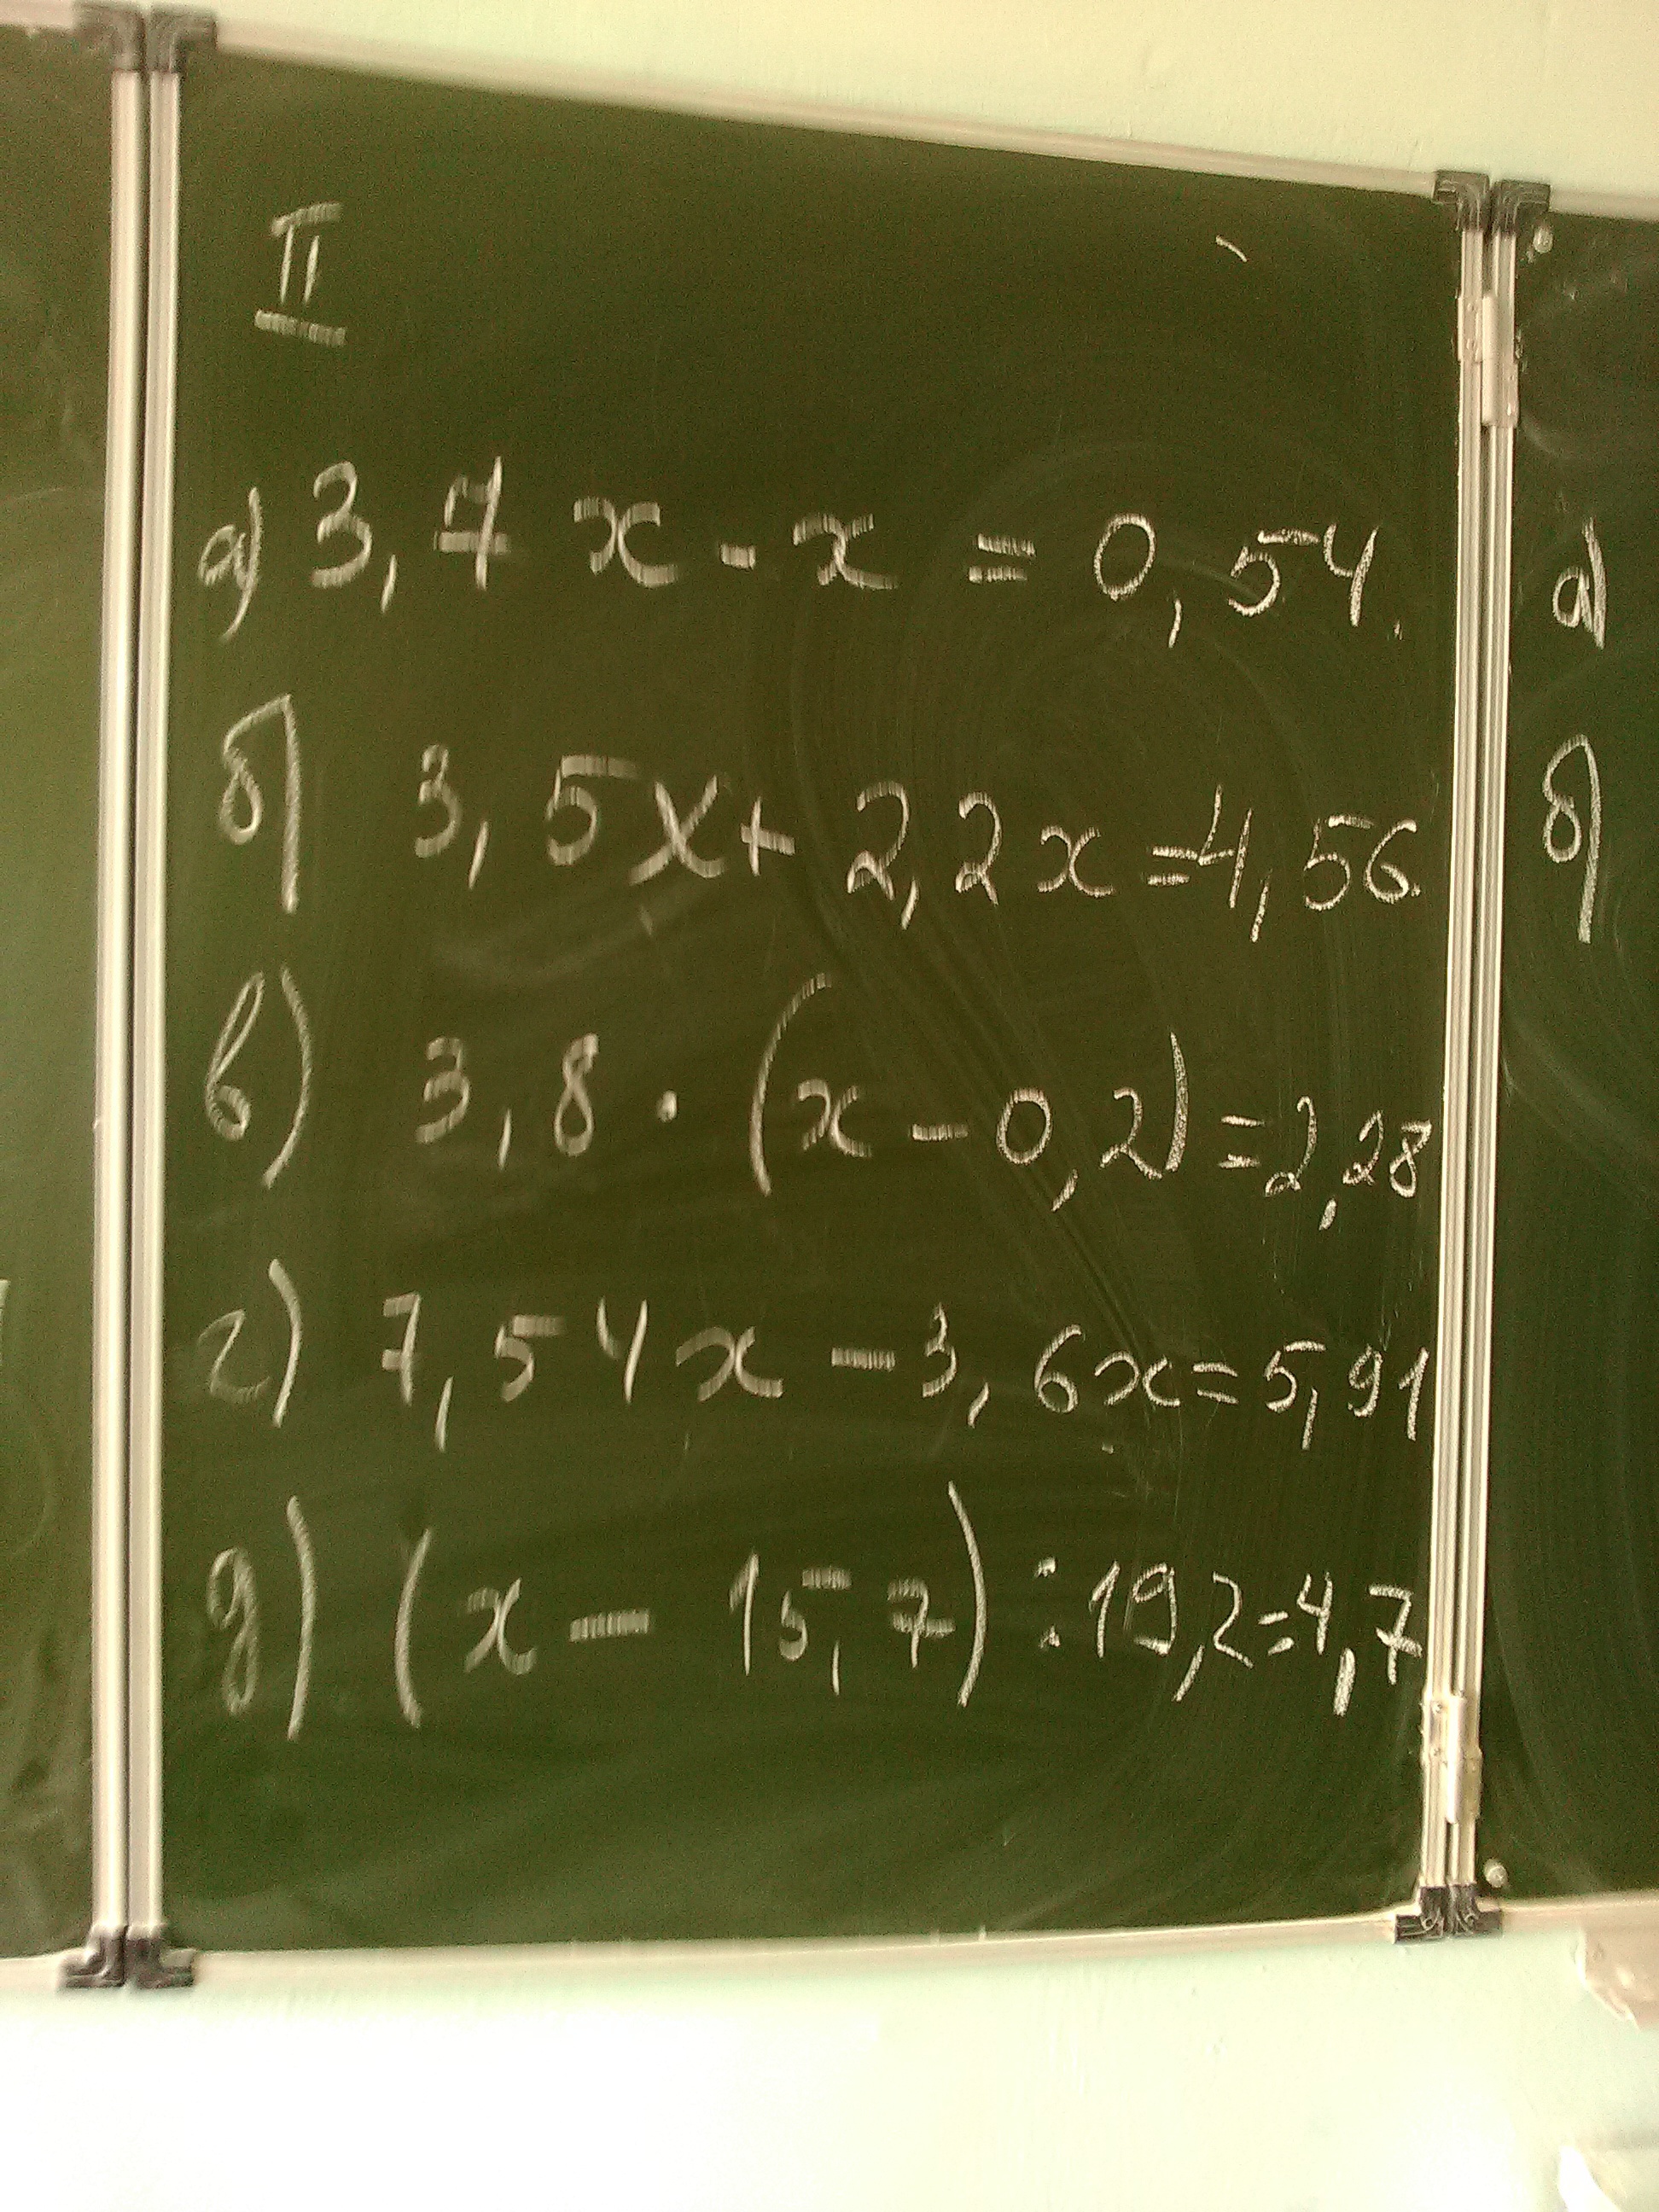 II
а) 3,7 x - x = 0,54.
б) 3,5x + 2,2x = 4,56.
в) 3,8 · (x - 0,2) = 2,28
г) 7,54x - 3,6x = 5,91
д) (x - 15,7) : 19,2 = 4,7
а)
б)